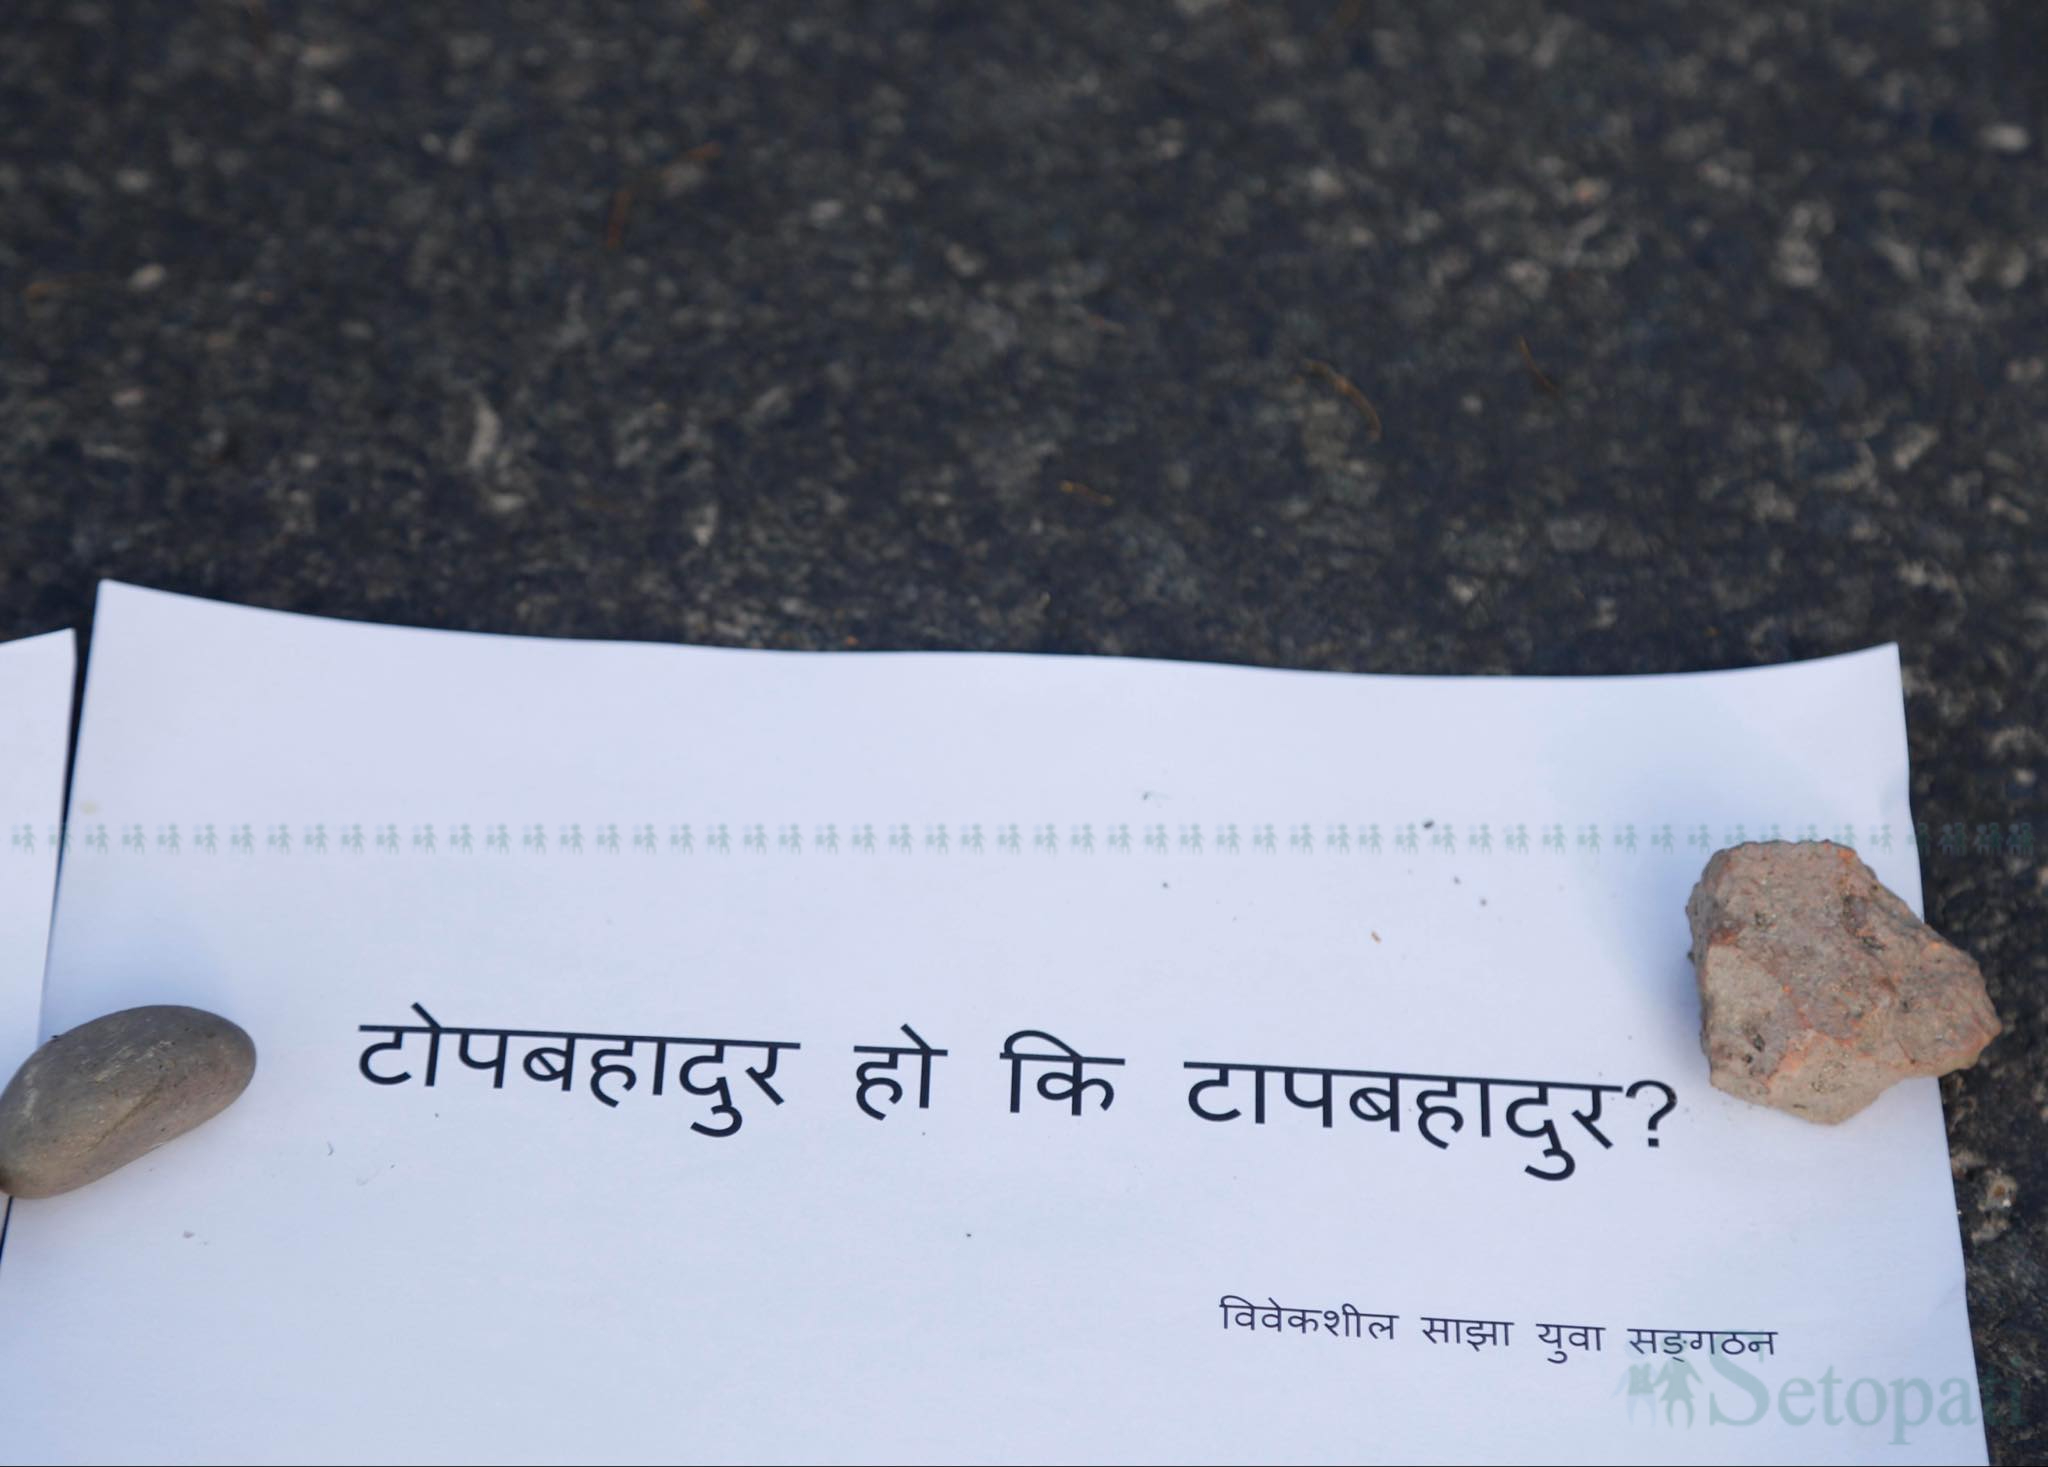 टोपबहादुर हो कि टापबहादुर?
विवेकशील साझा युवा सङ्गठन
Setopati